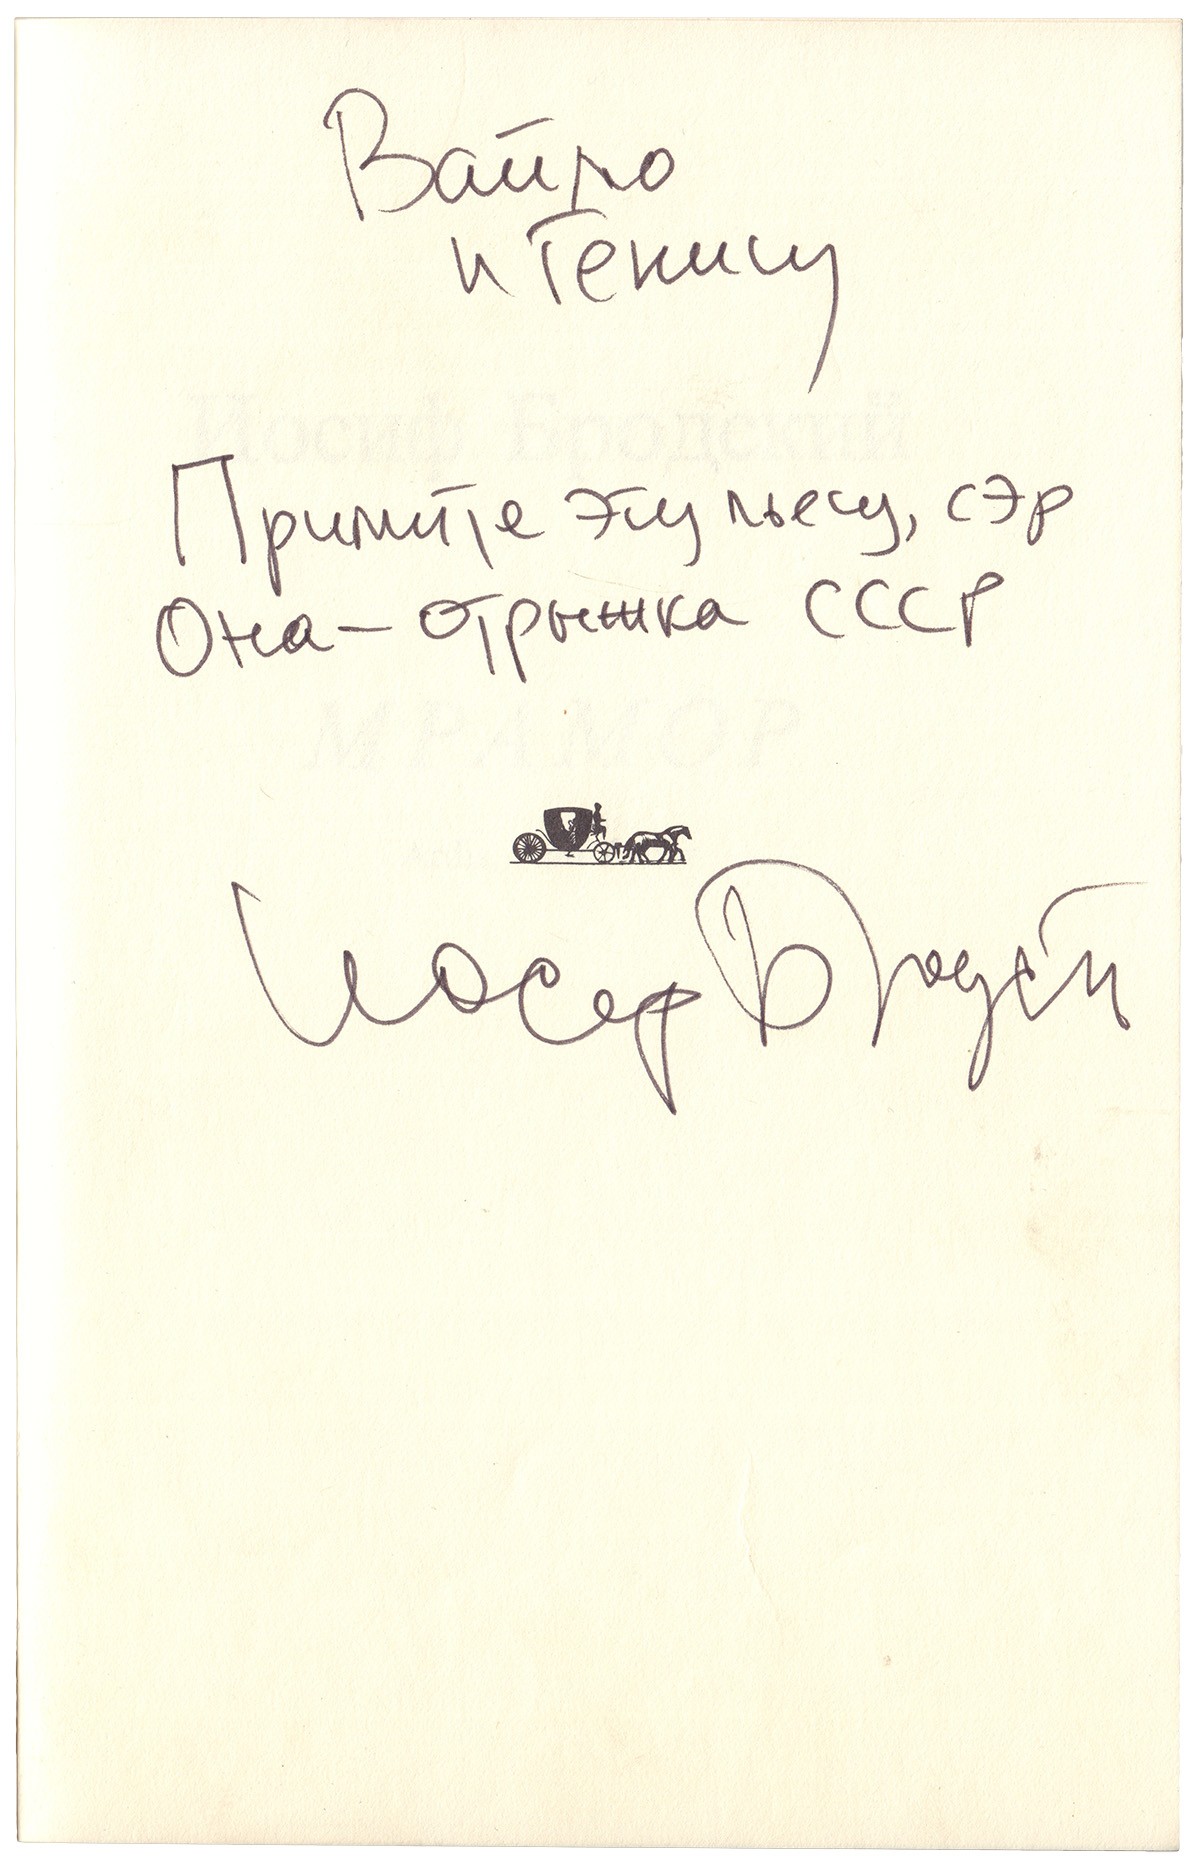 Вайлю
и Генису
Иосиф Бродский
Примите эту пьесу, сэр
Она – отрыжка СССР
МРАМОР
Иосиф Бродский